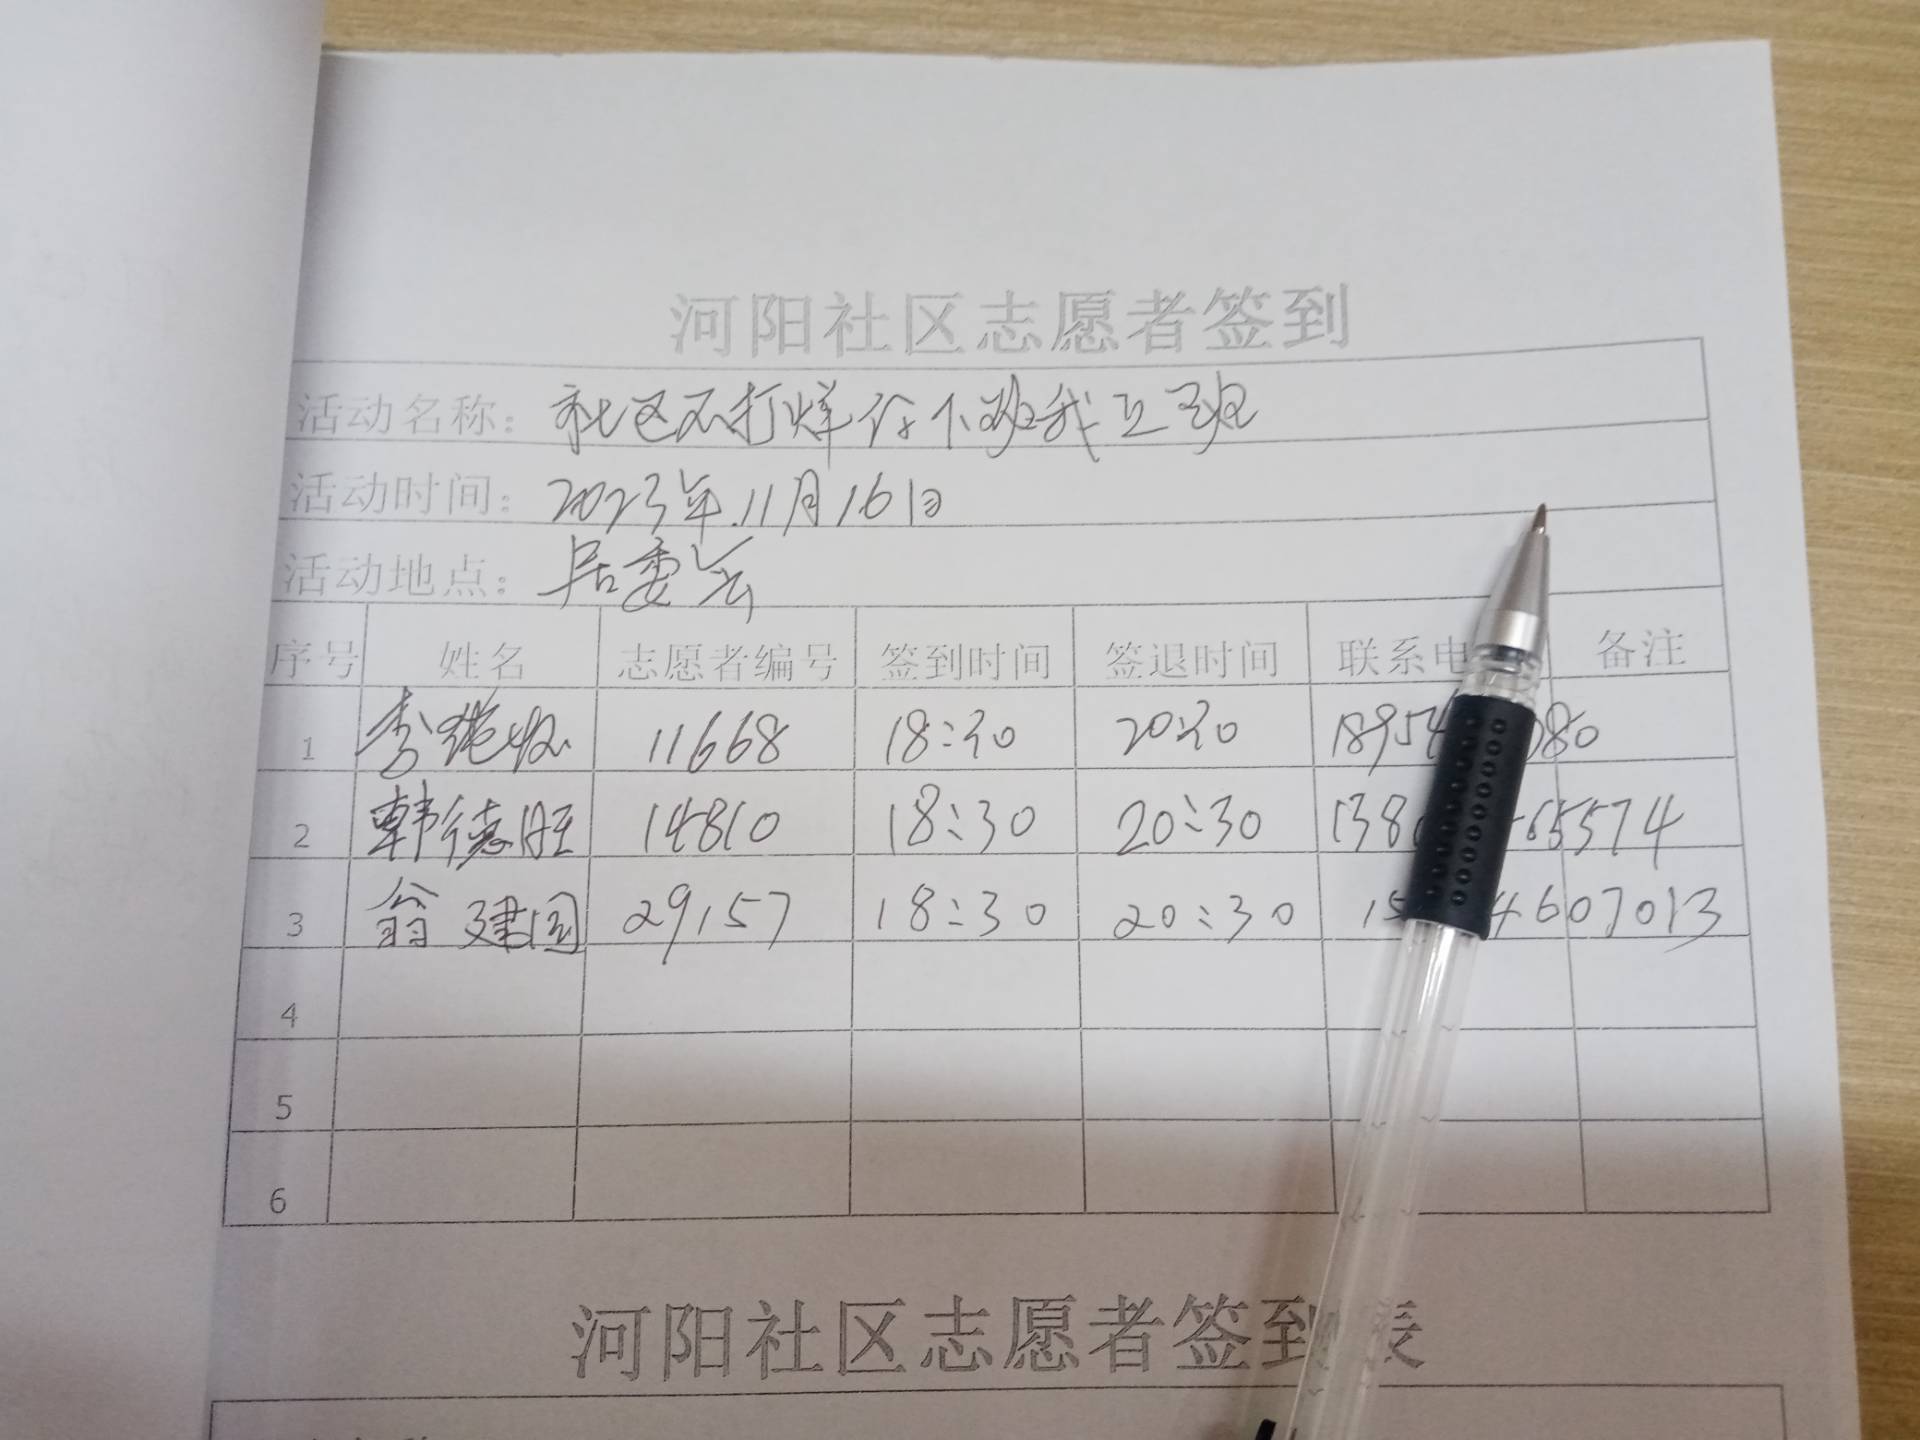 河阳社区志愿者签到
活动名称：社区不打烊 你下班我上班
活动时间：2023年.11月16日
活动地点：居委会
序号 姓名 志愿者编号 签到时间 签退时间 联系电 备注
1 李 11668 18:30 20:30 1895 080
2 韩德旺 14810 18:30 20:30 138 65574
3 翁建国 29157 18:30 20:30 15 4607013
4
5
6
河阳社区志愿者签到表